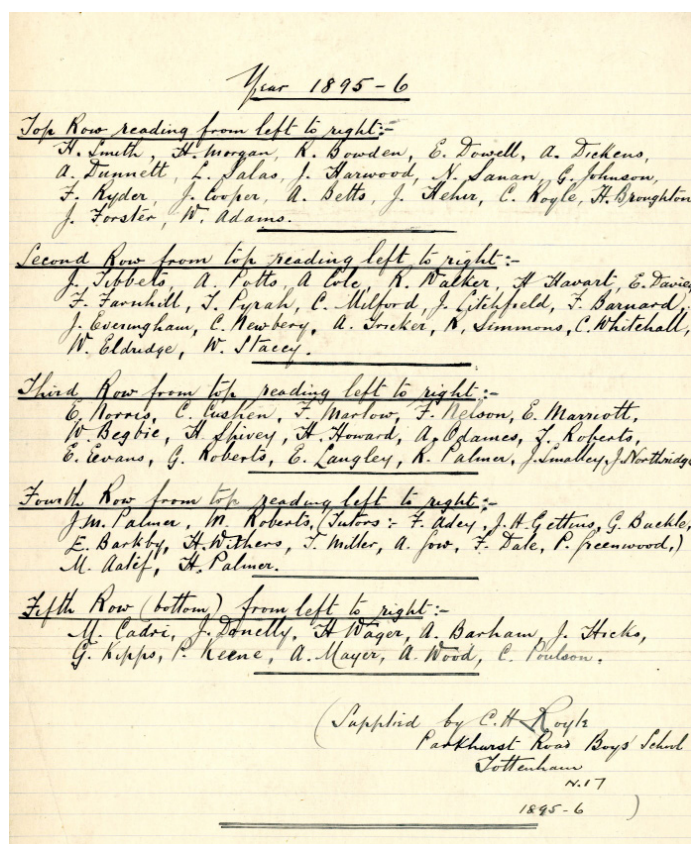 Year 1895-6
Top Row reading from left to right:-
H. Smith, H. Morgan, R. Bowden, E. Dowell, A. Dickens,
A. Dunnett, L. Salas, J. Harwood, N. Sanan, G. Johnson,
F. Ryder, J. Cooper, A. Betts, J. Heher, C. Royle, H. Broughton
J. Forster, W. Adams.
Second Row from top reading left to right:-
J. Tibbets, A. Potts, A Cole, R. Walker, H Havart, E. Davies,
F. Farnhill, T. Pyrah, C. Milford, J. Litchfield, F. Barnard,
J. Everingham, C. Newbery, A. Tricker, R. Simmons, C. Whitehall,
W. Eldridge, W. Stacey.
Third Row from top reading left to right:-
E. Norris, C. Cushen, F. Marlow, F. Nelson, E. Marriott,
W. Begbie, H. Spivey, H. Howard, A. Odames, T. Roberts,
E. Evans, G. Roberts, E. Langley, R. Palmer, J. Smalley, J. Northridge
Fourth Row from top reading left to right:-
J.M. Palmer, M. Roberts, (Tutors:- F. Adey, J.H. Gettins, G. Buckle,
E. Barkby, H. Withers, T. Miller, A. Gow, F. Dale, P. Greenwood,)
M. Aalef, H. Palmer.
Fifth Row (bottom) from left to right:-
M. Cadri, J. Donelly, H Wager, A. Barham, J. Hicks,
G. Kipps, P. Keene, A. Mayer, A. Wood, C. Poulson.
(Supplied by C.H. Royle
Parkhurst Road Boys' School
Tottenham
N.17
1895-6 )